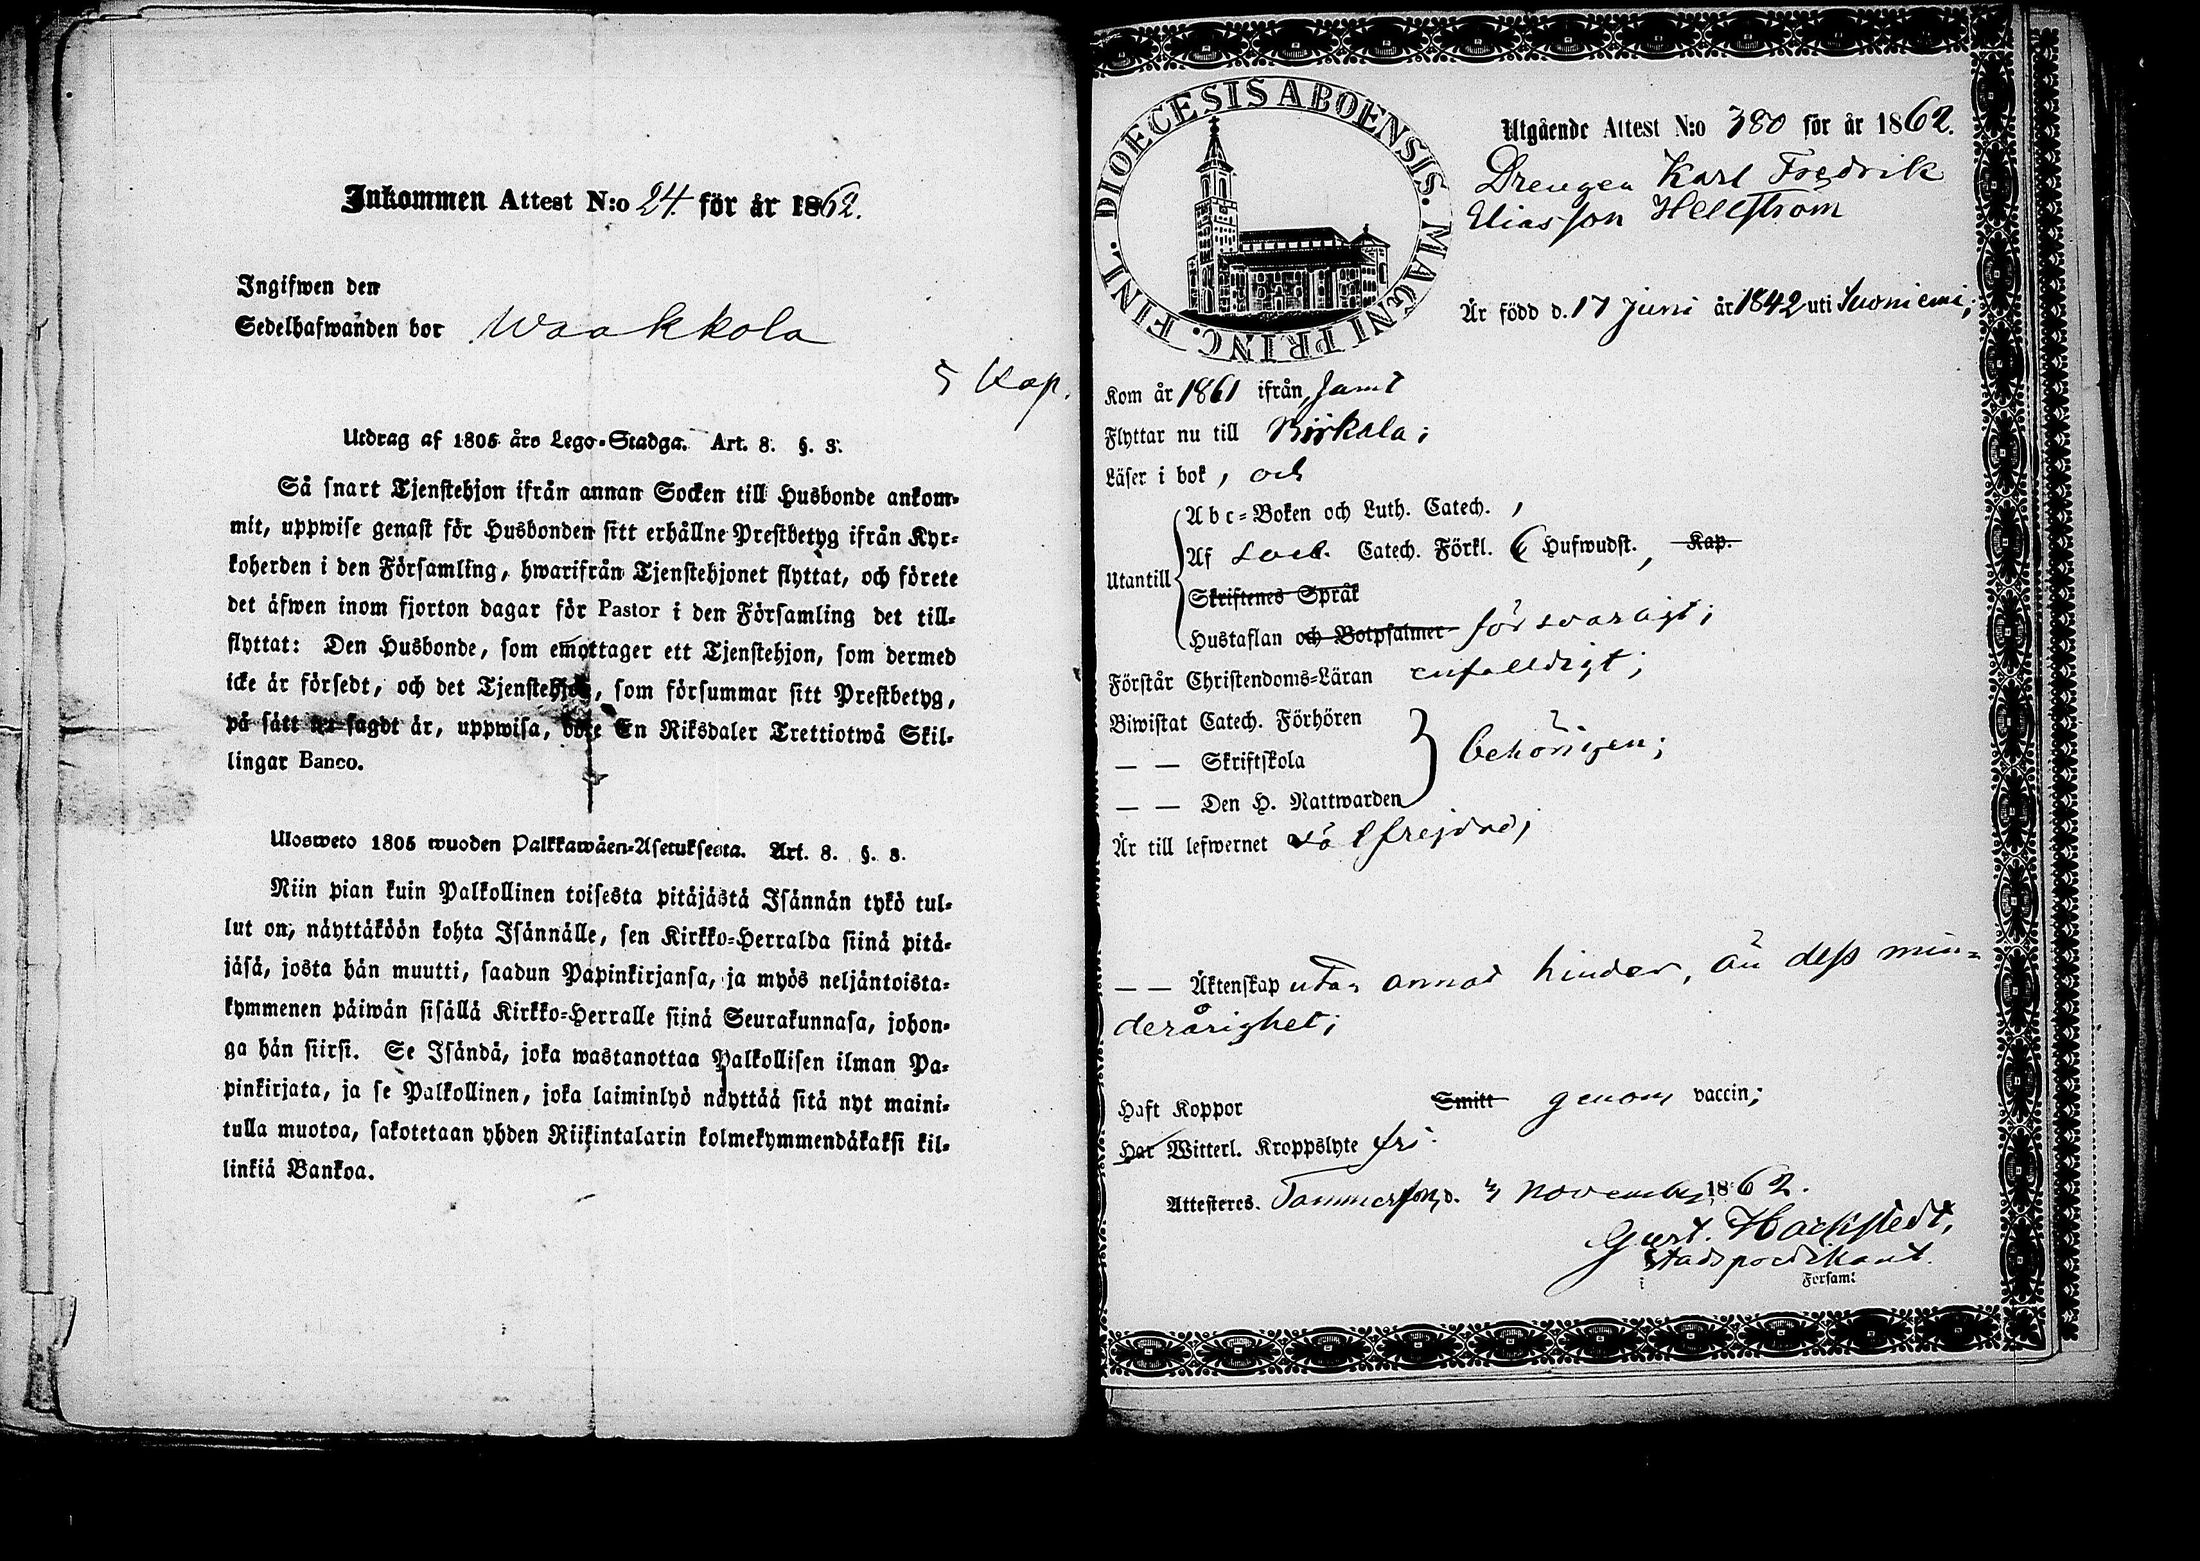 Inkommen Attest N:o 24. för år 1862.
Ingifwen den
Sedelhafwanden bor Waakkola
5 Kap.
Utdrag af 1805 års Lego-Stadga. Art. 8. §. 3.
Så snart Tjenstehjon ifrån annan Socken till Husbonde ankom-
mit, uppwise genast för Husbonden sitt erhållne Prestbetyg ifrån Kyr-
koherden i den Församling, hwarifrån Tjenstehjonet flyttat, och förete
det äfwen inom fjorton dagar för Pastor i den Församling det till-
flyttat: Den Husbonde, som emottager ett Tjenstehjon, som dermed
icke är försedt, och det Tjenstehjon, som försummar sitt Prestbetyg,
på sätt nu sagdt är, uppwisa, böte En Riksdaler Trettiotwå Skil-
lingar Banco.
Ulosweto 1805 wuoden Palkkawäen-Asetuksesta. Art. 8. §. 3.
Niin pian kuin Palkollinen toisesta pitäjästä Isännän tykö tul-
lut on, näyttäköön kohta Isännälle, sen Kirkko-Herralda siinä pitä-
jäsä, josta hän muutti, saadun Papinkirjansa, ja myös neljäntoista-
kymmenen päiwän sisällä Kirkko-Herralle siinä Seurakunnasa, johon-
ga hän siirsi. Se Isändä, joka wastanottaa Palkollisen ilman Pa-
pinkirjata, ja se Palkollinen, joka laiminlyö näyttää sitä nyt maini-
tulla muotoa, sakotetaan yhden Riikintalarin kolmekymmendäkaksi kil-
linkiä Bankoa.
DIOECESIS ABOENSIS. MAGNI PRINC. FINL.
Utgående Attest N:o 380 för år 1862.
Drengen Karl Fredrik
Eliasson Hellström
Är född d. 17 Juni år 1842 uti Suoniemi;
Kom år 1861 ifrån, samt
Flyttar nu till Birkala;
Läser i bok, och
Abc-Boken och Luth. Catech.,
Af Soeb. Catech. Förkl. 6 Hufwudst., Kap.
Utantill
Skriftenes Språk
Hustaflan och Botpsalmer försvarligt;
Förstår Christendoms-Läran enfalldigt;
Biwistat Catech. Förhören
— — Skriftskola
behörigen;
— — Den H. Nattwarden
Är till lefwernet välfrejdad;
— — Äktenskap utan annat hinder, än dess min-
derårighet;
Haft Koppor Smitt genom vaccin;
Har Witterl. Kroppslyte fri.
Attesteres. Tammerfors, d. November 1862.
Gust. Hackstedt,
Stadspredikant.
i Forsaml